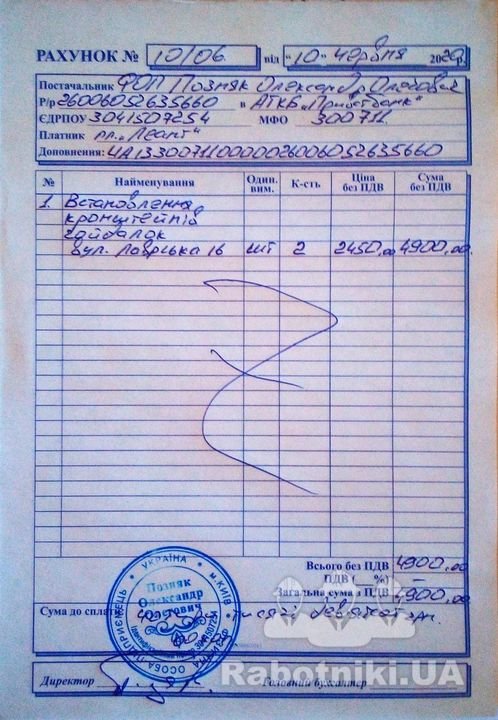 РАХУНОК № 10/06 від "10" червня 2020р.
Постачальник ФОП Позняк Олександр Олегович
Р/р 26006052635660 в АТКБ "Приватбанк"
ЄДРПОУ 3041507254 МФО 300711
Платник пп. "Леант"
Доповнення: UA133007110000026006052635660
№ Найменування Один. вим. К-сть Ціна без ПДВ Сума без ПДВ
1. Встановлення
кронштейнів
гойдалок
вул. Лаврська 16 шт 2 2450,00 4900,00
Всього без ПДВ 4900,00
ПДВ ( %) —
Загальна сума з ПДВ 4900,00
Сума до сплати: тисячі дев'ятсот грн.
УКРАЇНА * м. КИЇВ
Позняк
Олександр
Олегович
Ідентифікаційний номер 3041507254
ФІЗИЧНА ОСОБА-ПІДПРИЄМЕЦЬ
Директор Головний бухгалтер
Rabotniki.UA